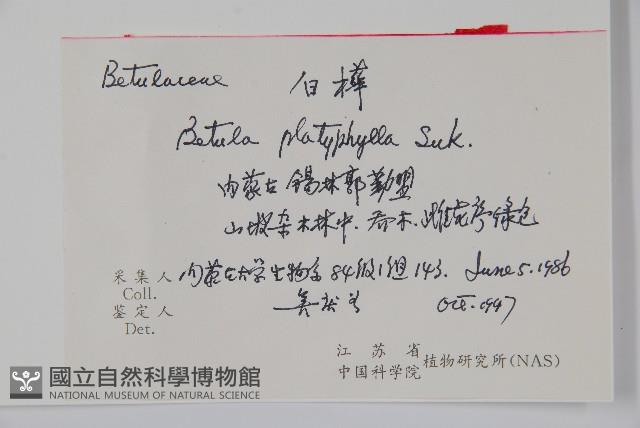 Betulaceae 白樺
Betula platyphylla Suk.
内蒙古 锡林郭勒盟
山坡杂木林中. 乔木. 雌花序绿色
采集人 Coll. 内蒙古大学生物系84级1组 143. June 5. 1986
鉴定人 Det. Oct. 1997
江苏省
中国科学院 植物研究所(NAS)
國立自然科學博物館
NATIONAL MUSEUM OF NATURAL SCIENCE